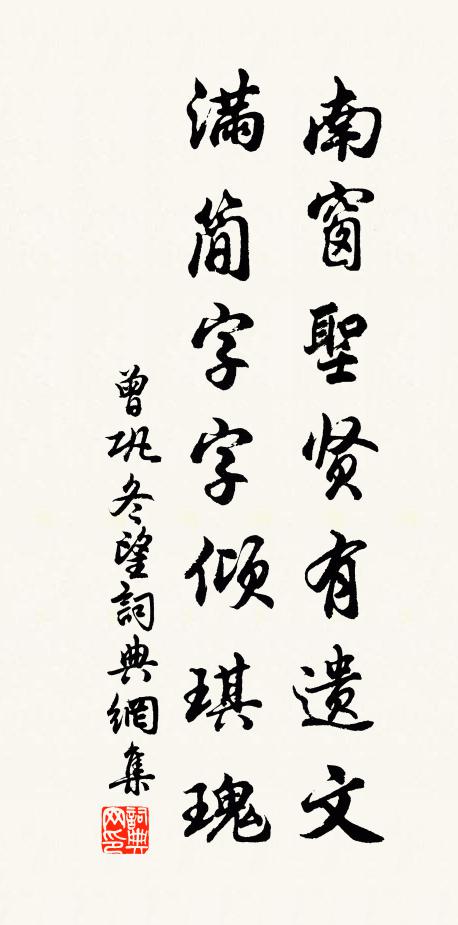 南窗聖贤有遗文
满简字字倾琪瑰
曾巩冬望詞典網集
詞典网印